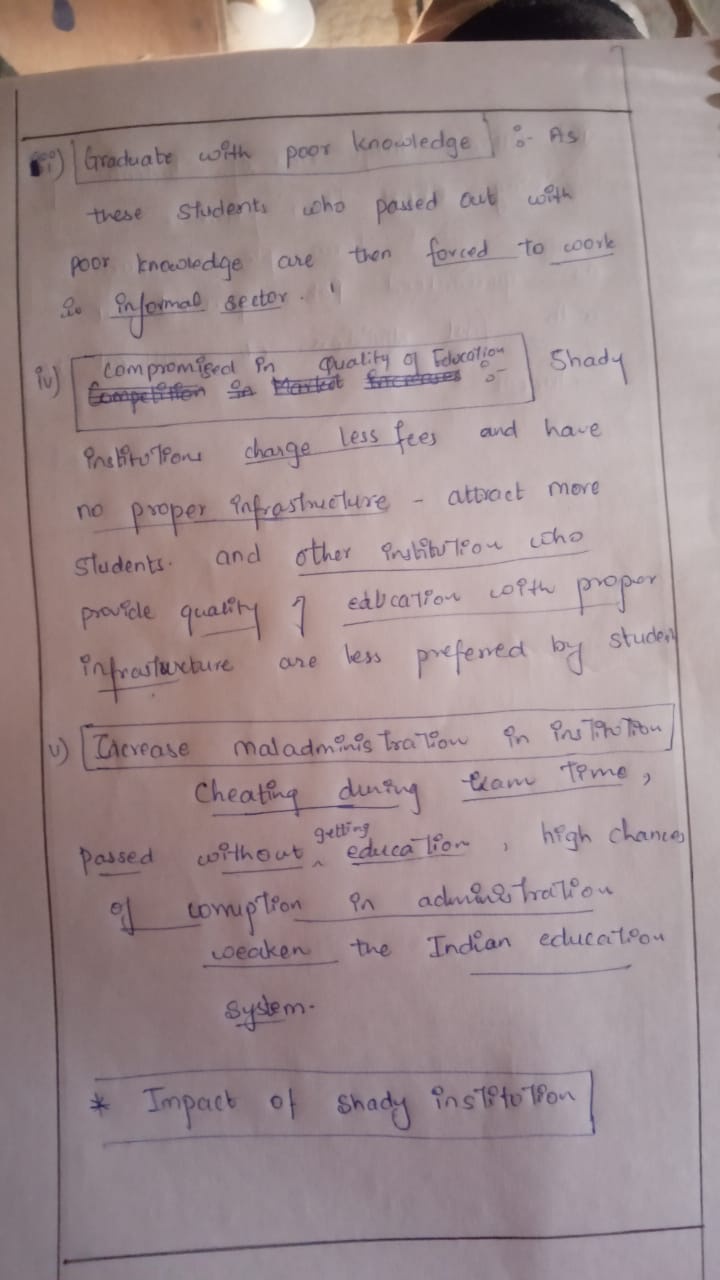 iii) Graduate with poor knowledge :- As
these students who passed out with
poor knowledge are then forced to work
in informal sector.
iv) compromised in quality of Education
Competition in Market increases :- Shady
institutions charge less fees and have
no proper infrastructure - attract more
students. and other institution who
provide quality of education with proper
infrasturcture are less preferred by student
v) Increase maladministration in institution
Cheating during exam time,
passed without getting education, high chances
of corruption in administration
weaken the Indian education
system.
* Impact of shady institution